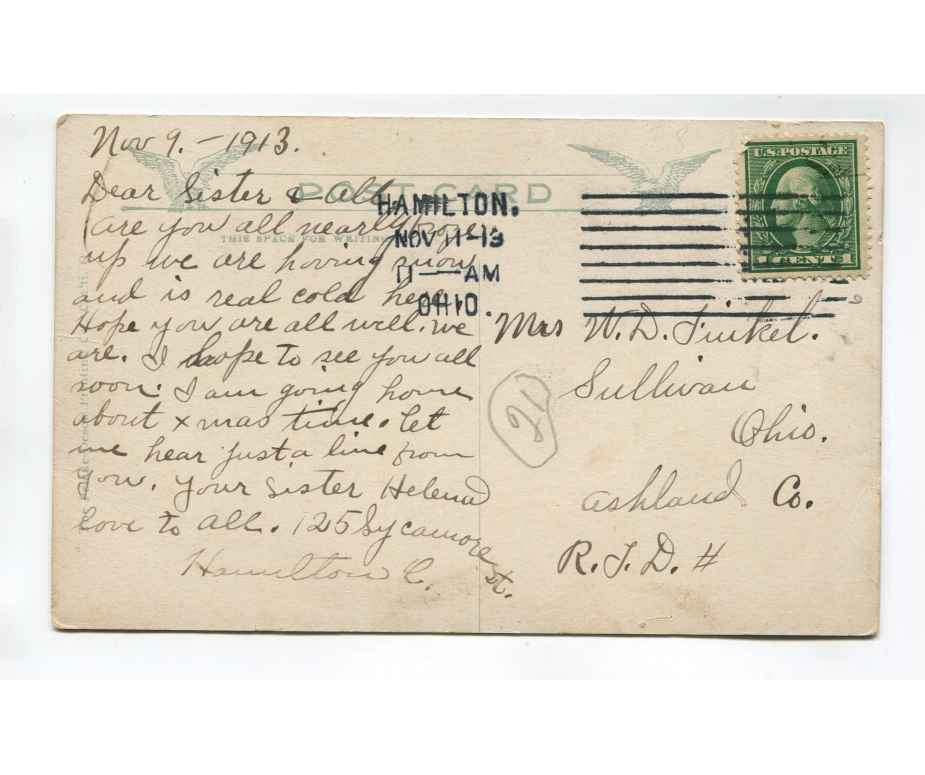 Nov 9. - 1913.
POST CARD
THIS SPACE FOR WRITING
Dear Sister & all.
are you all nearly froze
up we are having snow
and is real cold here.
Hope you are all well. we
are. I hope to see you all
soon. I am going home
about xmas time. let
me hear just a line from
you. Your Sister Helena
Love to all. 125 Sycamore
st.
Hamilton O.
HAMILTON.
NOV 11-13
11 — AM
OHIO.
U.S. POSTAGE
1 CENT 1
Mrs W. D. Finkel.
Sullivan
Ohio.
Ashland Co.
R. F. D. #
21